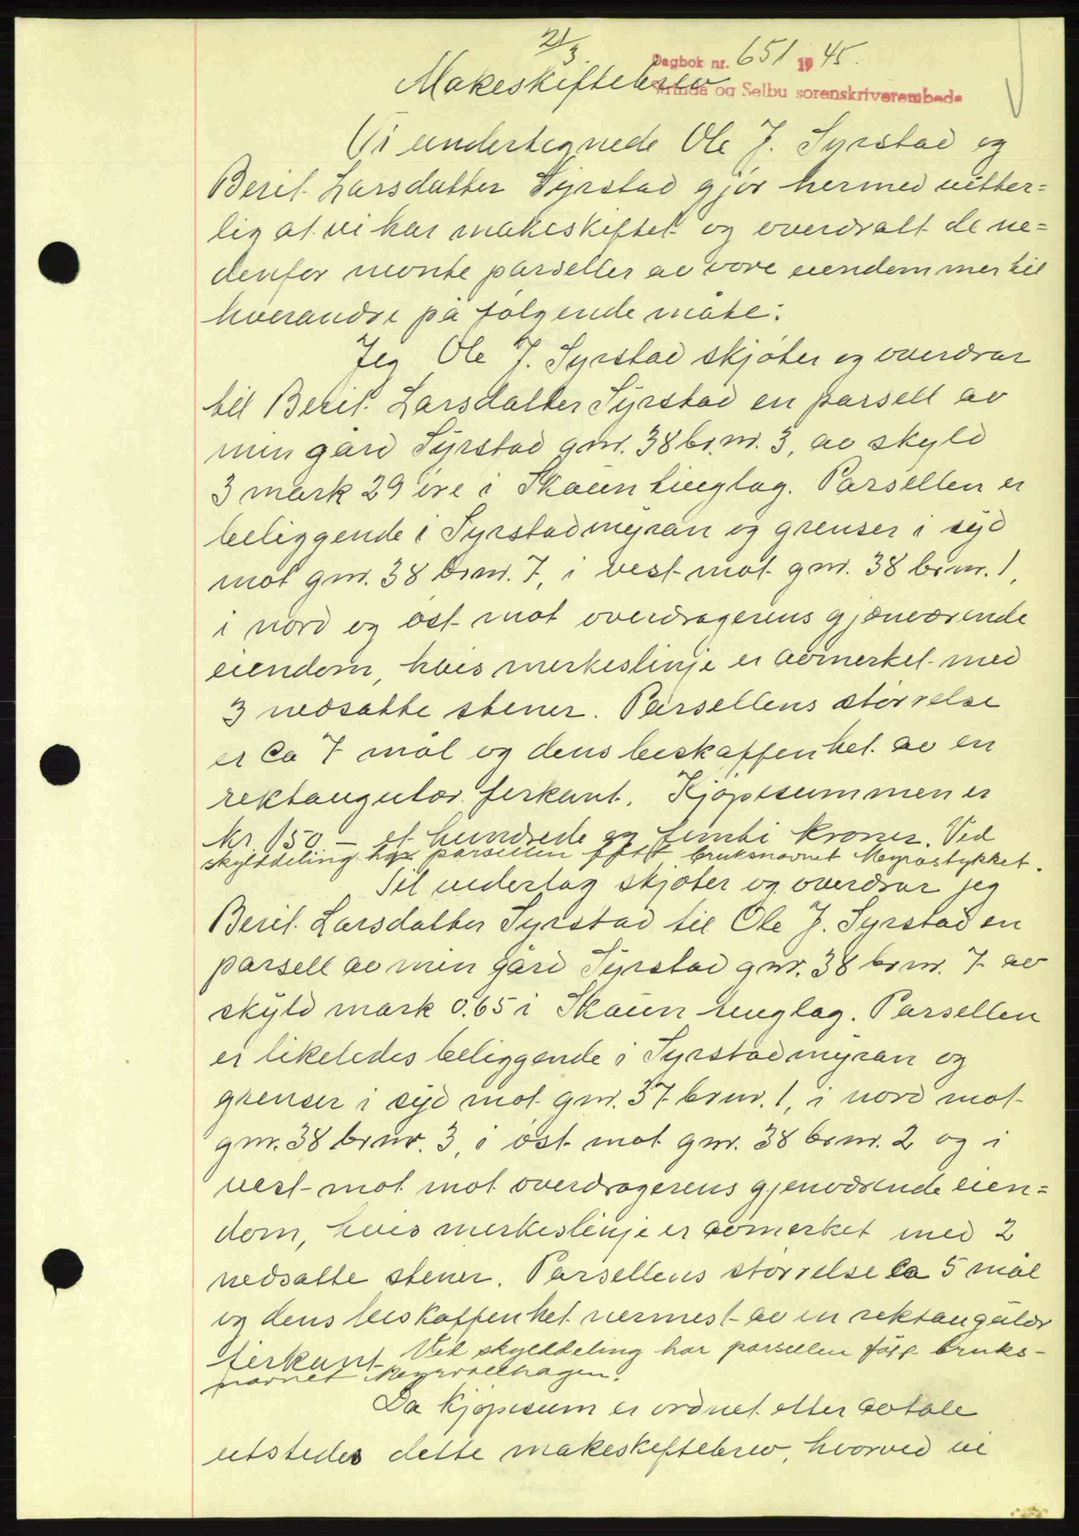 21/3
Dagbok nr. 651 1945.
Makeskiftebrev
Strinda og Selbu sorenskriverembede
Vi undertegnede Ole J. Syrstad og
Berit Larsdatter Syrstad gjör hermed vitter=
lig at vi har makeskiftet og overdratt de ne=
denfor nevnte parseller av våre eiendommer til
hverandre på fölgende måte:
Jeg Ole J. Syrstad skjöter og overdrar
til Berit Larsdatter Syrstad en parsell av
min gård Syrstad gnr. 38 br.nr. 3, av skyld
3 mark 29 öre i Skaun tinglag. Parsellen er
beliggende i Syrstadmyran og grenser i syd
mot gnr. 38 brnr. 7, i vest mot gnr. 38 brnr. 1,
i nord og öst mot overdragerens gjenværende
eiendom, hvis merkeslinje er avmerket med
3 nedsatte stener. Parsellens störrelse
er ca 7 mål og dens beskaffenhet av en
rektangulær firkant. Kjöpesummen er
kr 150 — et hundrede og femti kroner. Ved
skylddeling har parsellen fått bruksnavnet Myrastykket.
Til vederlag skjöter og overdrar jeg
Berit Larsdatter Syrstad til Ole J. Syrstad en
parsell av min gård Syrstad gnr. 38 brnr. 7 av
skyld mark 0.65 i Skaun tinglag. Parsellen
er likeledes beliggende i Syrstadmyran og
grenser i syd mot gnr. 37 brnr. 1, i nord mot
gnr. 38 brnr. 3, i öst mot gnr. 38 brnr. 2 og i
vest mot mot overdragerens gjenværende eien=
dom, hvis merkeslinje er avmerket med 2
nedsatte stener. Parsellens störrelse ca 5 mål
og dens beskaffenhet nermest av en rektangulær
firkant. Ved skylddeling har parsellen fått bruks-
navnet
Da kjöpesum er ordnet etter avtale
utstedes dette makeskiftebrev, hvorved vi